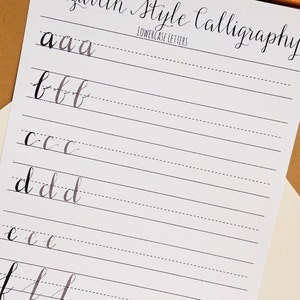 Style Calligraphy
LOWERCASE LETTERS
a a a
b b b
c c c
d d d
e e e
f f f